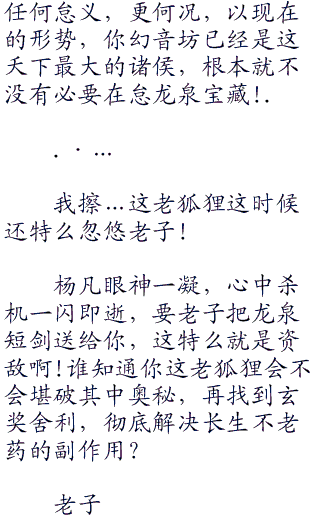 任何怠义，更何况，以现在
的形势，你幻音坊已经是这
天下最大的诸侯，根本就不
没有必要在怠龙泉宝藏！.
．·…
我擦…这老狐狸这时候
还特么忽悠老子！
杨凡眼神一凝，心中杀
机一闪即逝，要老子把龙泉
短剑送给你，这特么就是资
敌啊！谁知通你这老狐狸会不
会堪破其中奥秘，再找到玄
奖舍利，彻底解决长生不老
药的副作用？
老子